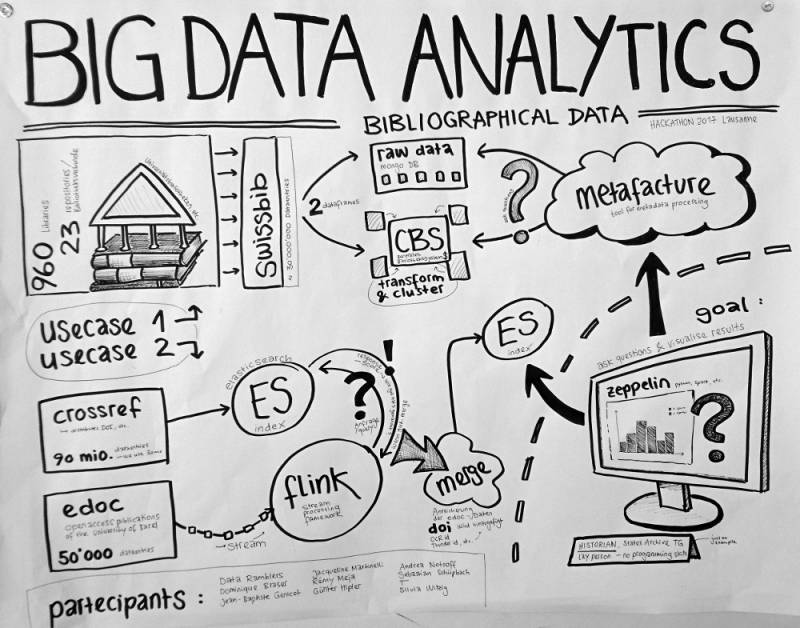 BIG DATA ANALYTICS
BIBLIOGRAPHICAL DATA
HACKATHON 2017 Lausanne
960 Libraries
23 repositories/
Swissbib
~ 30'000'000 Dataentries
2 dataframes
raw data
mongo DB
CBS
transform
& cluster
?
metafacture
tool for metadata processing
usecase 1
usecase 2
goal :
ask questions & visualise results
zeppelin
?
HISTORIAN, States Archive TG
Lay person - no programming
just an
example
crossref
90 mio. dataentries
elasticsearch
ES
index
!
?
ES
index
edoc
open access publications
of the university of Basel
50'000 dataentries
Stream
flink
stream
processing
framework
merge
Anreicherung
der edoc-Daten
doi
partecipants :
Data Ramblers
Dominique Blaser
Jean-Baptiste Genicot
Jacqueline Martinelli
Rémy Meja
Günter Hipler
Andrea Notroff
Sebastian Schüpbach
Silvia Witzig